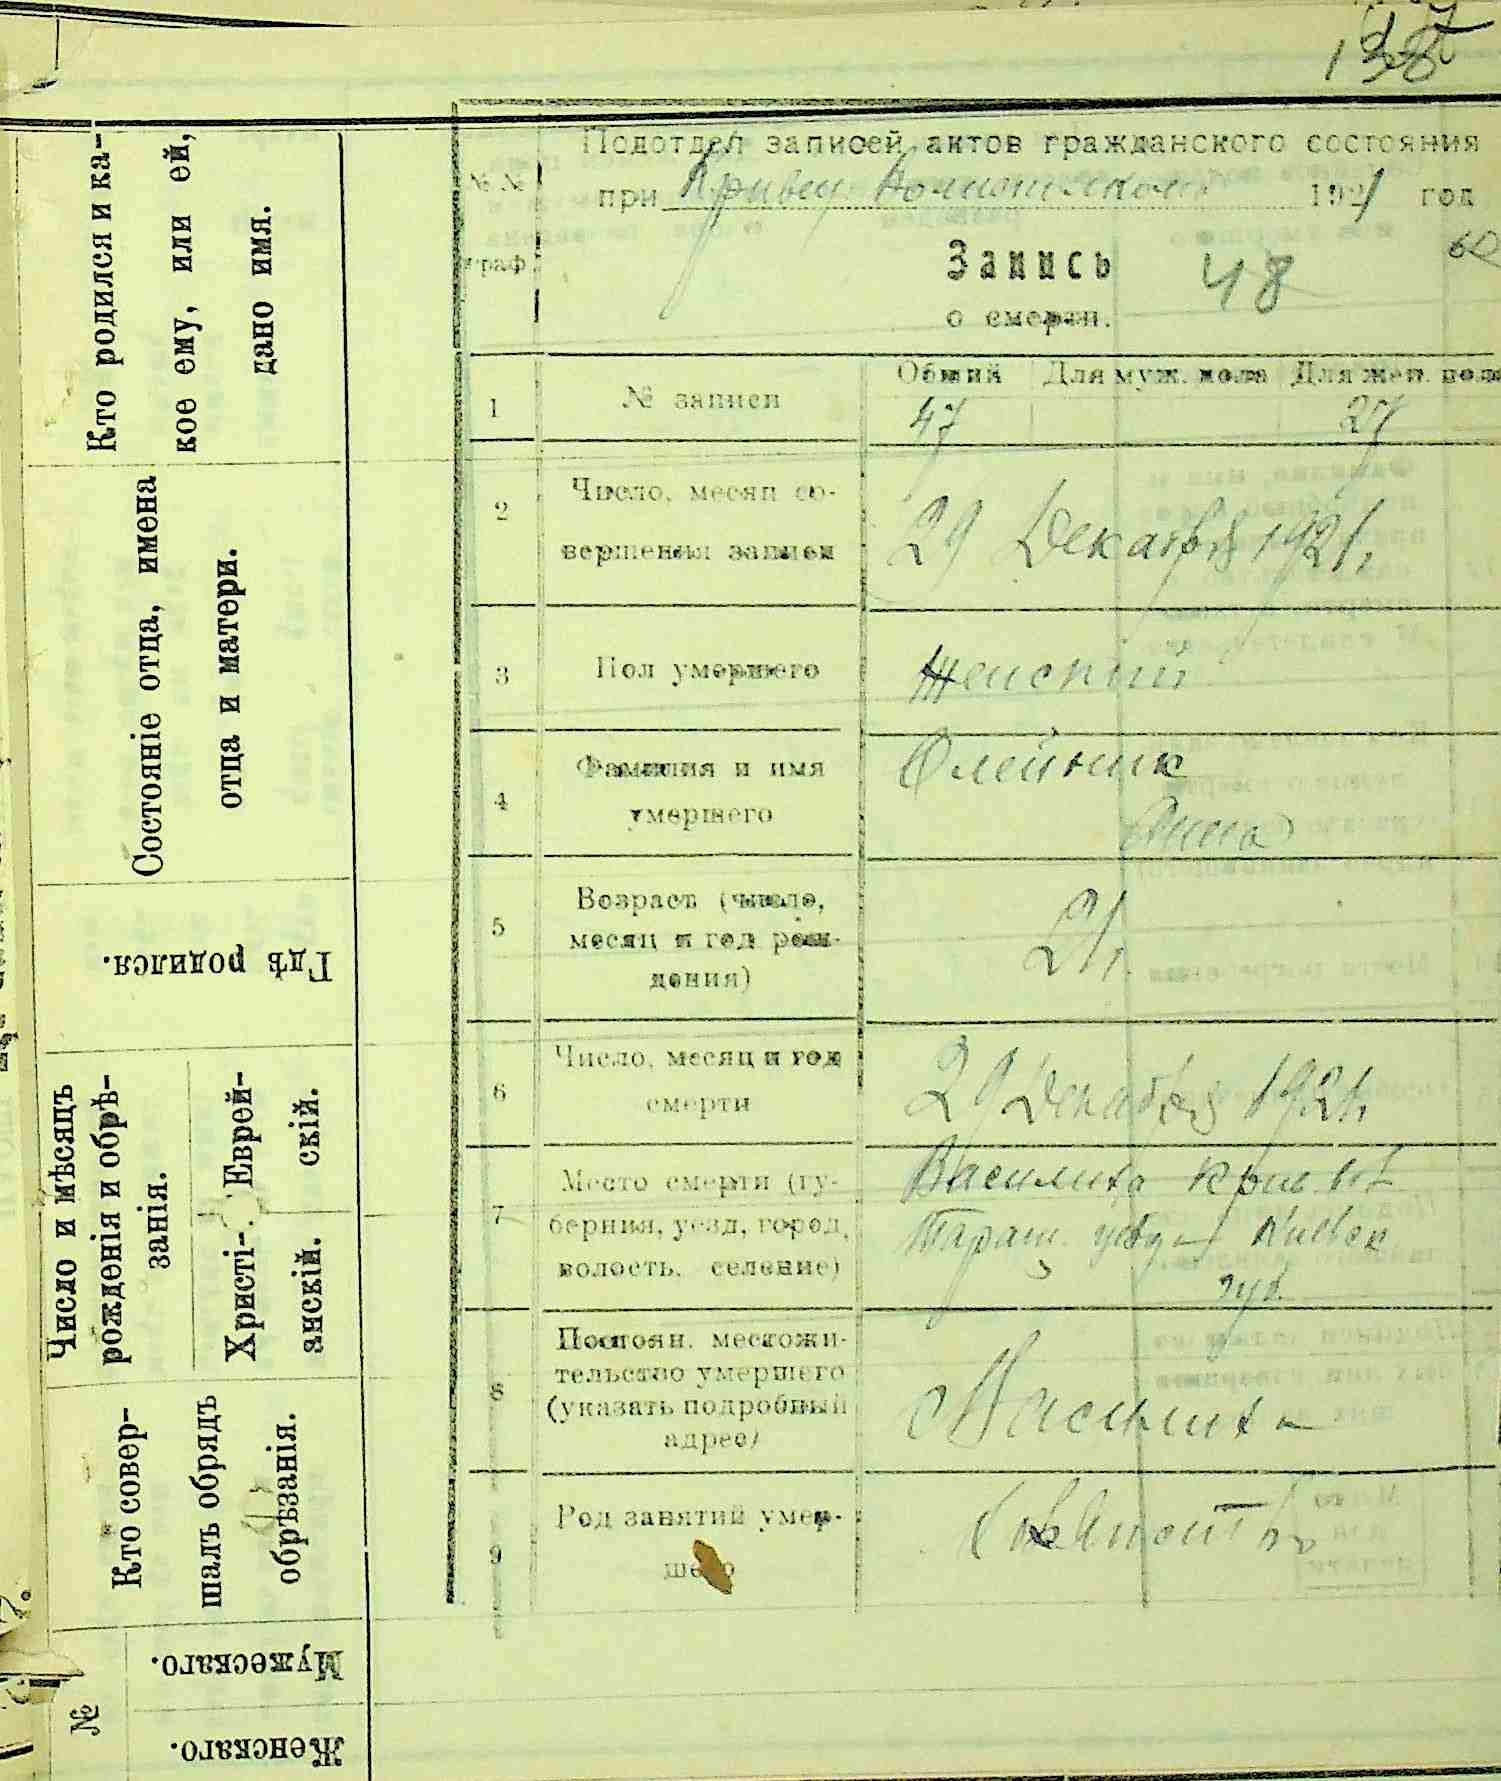 137
Кто родился и ка-
кое ему, или ей,
дано имя.
Состояніе отца, имена
отца и матери.
Гдѣ родился.
Число и мѣсяцъ
рожденія и обрѣ-
занія.
Христі-
анскій.
Еврей-
скій.
Кто совер-
шалъ обрядъ
обрѣзанія.
№
Мужескаго.
Женскаго.
№№
граф.
Подотдел записей актов гражданского состояния
при 1921 год
Запись 48
о смерти.
1
№ записи
Общий Для муж. пола Для жен. пола
47 27
2
Число, месяц со-
вершения записи
29 Декабря 1921.
3
Пол умершего
Женский
4
Фамилия и имя
умершего
Олейник
Анна
5
Возраст (число,
месяц и год рож-
дения)
21.
6
Число, месяц и год
смерти
29 Декабря 1921.
7
Место смерти (гу-
берния, уезд, город,
волость, селение)
Василиха
Таращ. Киевск
губ.
8
Постоян. местожи-
тельство умершего
(указать подробный
адрес)
Василиха
9
Род занятий умер-
шего